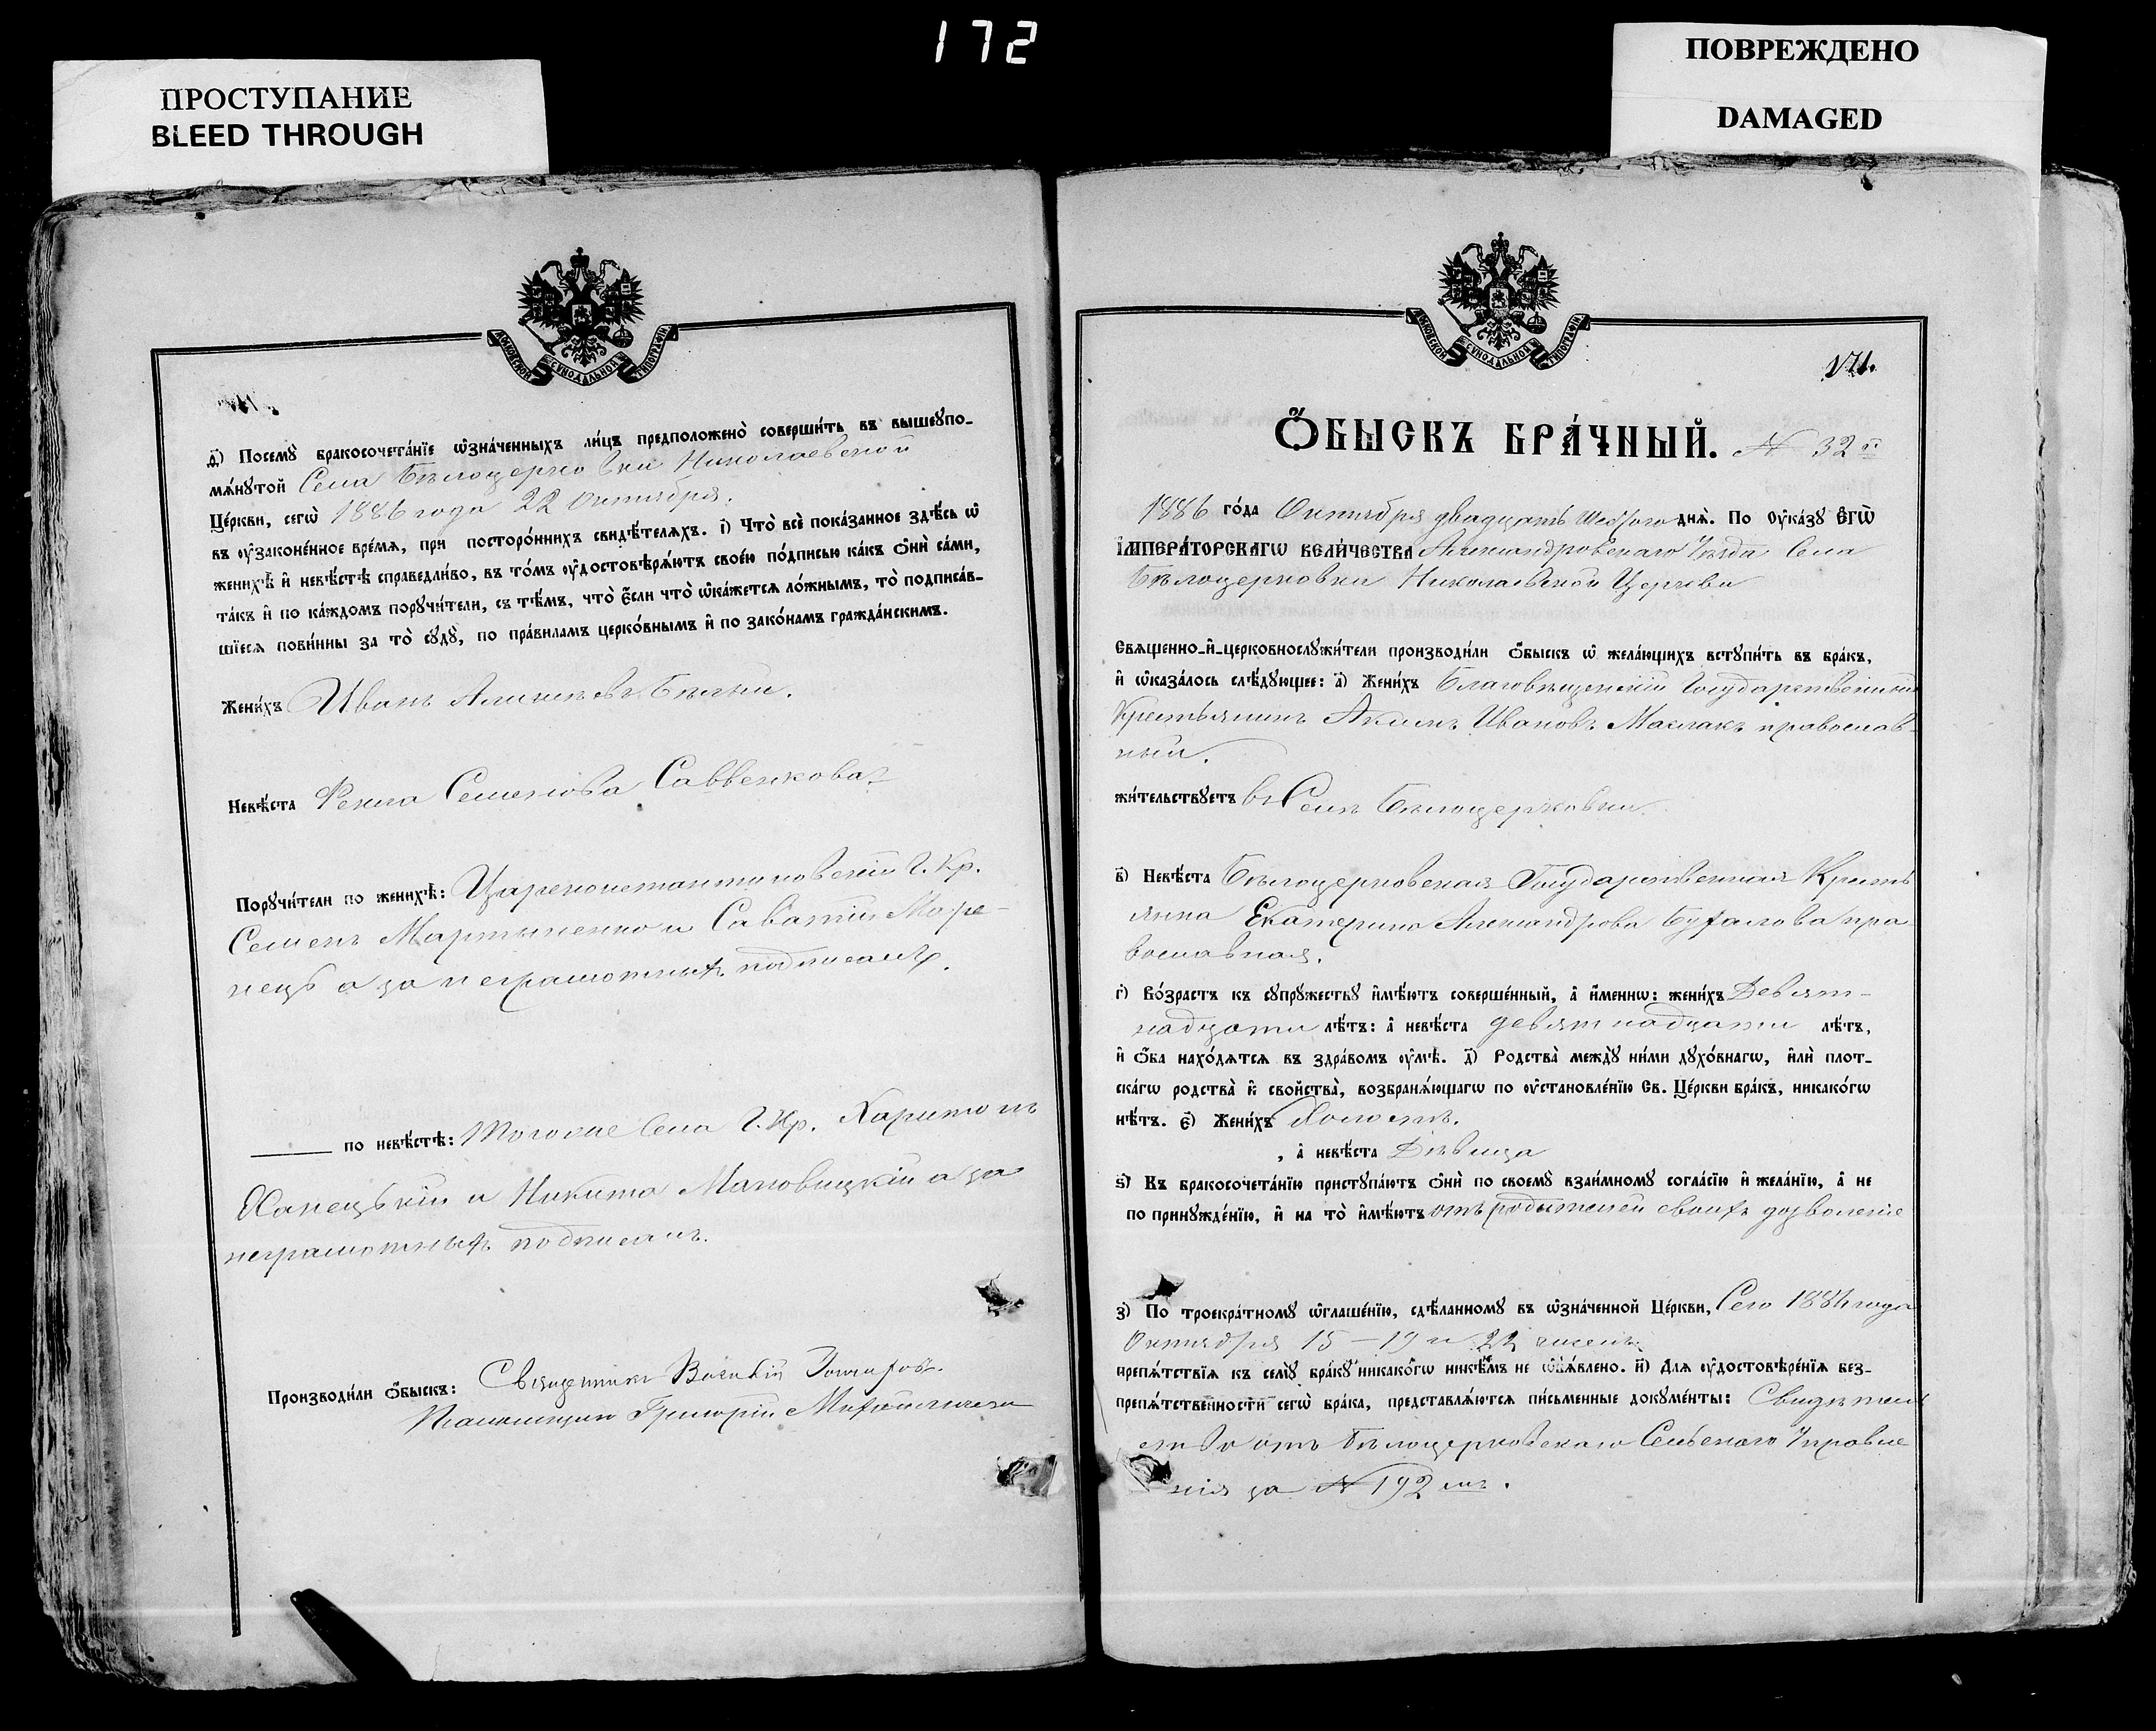 172
ПРОСТУПАНИЕ
BLEED THROUGH
ПОВРЕЖДЕНО
DAMAGED
МОСКОВСКОЙ СѴНОДАЛЬНОЙ ТИПОГРАФІИ
д҃) Посемꙋ̀ бракосочета́нїе ѡ҆зна́ченныхъ ли́цъ предположено̀ соверши́ть въ вышеꙋпо-
мѧ́нꙋтой Села Бѣлоцерковки Николаевской
Це́ркви, сегѡ̀ 1886 года 22 Октября.
въ ᲂу҆законе́нное вре́мѧ, при посторо́ннихъ свидѣ́телѧхъ. і҃) Что̀ всѐ пока́занное здѣ́сь ѡ҆
женихѣ̀ и҆ невѣ́стѣ справедли́во, въ то́мъ ᲂу҆достовѣрѧ́ютъ свое́ю по́дписью ка́къ ѻ҆нѝ са́ми,
та́къ и҆ по ка́ждомъ порꙋчи́тели, съ тѣ́мъ, что̀ є҆́сли что̀ ѡ҆ка́жетсѧ ло́жнымъ, то̀ подписа́в-
шїесѧ пови́нны за то̀ сꙋдꙋ̀, по пра́виламъ церко́внымъ и҆ по зако́намъ гражда́нскимъ.
Жени́хъ Иванъ Алексѣевъ Бѣлый.
Невѣ́ста Фекла Семенова Саввенкова
Порꙋчи́тели по женихѣ̀: Цареконстантиновскій Г. Кр.
Семенъ Мартыненко и Саватій Море-
нецъ а за неграмотныхъ подписалъ
по невѣ́стѣ: Тогоже Села Г. Кр. Харитонъ
Ханецькій и Никита Маковицкій а за
неграмотныхъ подписалъ.
Производи́ли ѻ҆́быскъ: Священникъ
Псаломщикъ Григорій
171.
Ѻ҆́БЫСКЪ БРА́ЧНЫЙ. № 32й
1886 го́да Октября двадцать шестого днѧ̀. По ᲂу҆ка́зꙋ Є҆гѡ̀
І҆МПЕРА́ТОРСКАГѠ ВЕЛИ́ЧЕСТВА Александровскаго Уѣзда Села
Бѣлоцерковки Николаевской Церкви
Свѧщенно-и҆-церковнослꙋжи́тели производи́ли ѻ҆́быскъ ѡ҆ жела́ющихъ встꙋпи́ть въ бра́къ,
и҆ ѡ҆каза́лось слѣ́дꙋющее: а҃) Жени́хъ Благовѣщенскій Государственный
Крестьянинъ Акимъ Ивановъ Маклакъ православ-
ный.
жи́тельствꙋетъ въ Селѣ Бѣлоцерковки.
в҃) Невѣ́ста Бѣлоцерковская Государственная Кресть
янка Екатерина Александрова Бухалова пра-
вославная.
г҃) Во́зрастъ къ сꙋпрꙋ́жествꙋ и҆мѣ́ютъ соверше́нный, а҆ и҆́меннѡ: жени́хъ Девят-
надцати лѣ́тъ: а҆ невѣ́ста девятнадцати лѣ́тъ,
и҆ ѻ҆́ба нахо́дѧтсѧ въ здра́вомъ ᲂу҆мѣ̀. д҃) Родства̀ междꙋ̀ ни́ми дꙋхо́внагѡ, и҆лѝ плот-
ска́гѡ родства̀ и҆ свойства̀, возбранѧ́ющагѡ по ᲂу҆становле́нїю Св. Це́ркви бра́къ, никако́гѡ
нѣ́тъ. є҃) Жени́хъ Холостъ.
, а҆ невѣ́ста Дѣвица
ѕ҃) Къ бракосочета́нїю пристꙋпа́ютъ ѻ҆нѝ по своемꙋ̀ взаи́мномꙋ согла́сїю и҆ жела́нїю, а҆ не
по принꙋжде́нїю, и҆ на то̀ и҆мѣ́ютъ отъ родителей своихъ дозволеніе
з҃) По троекра́тномꙋ ѡ҆глаше́нїю, сдѣ́ланномꙋ въ ѡ҆зна́ченной Це́ркви, Сего 1886 года
Октября 15 – 19 и 22 чиселъ
препѧ́тствїѧ къ семꙋ̀ бра́кꙋ никако́гѡ никѣ́мъ не ѡ҆б̾ѧ́влено. и҃) Длѧ ᲂу҆достовѣре́нїѧ без-
препѧ́тственности сегѡ̀ бра́ка, представлѧ́ютсѧ пи́сьменные докꙋме́нты: Свидѣтель
ство отъ Бѣлоцерковскаго Сельскаго Управле
нія за № 192 мъ.